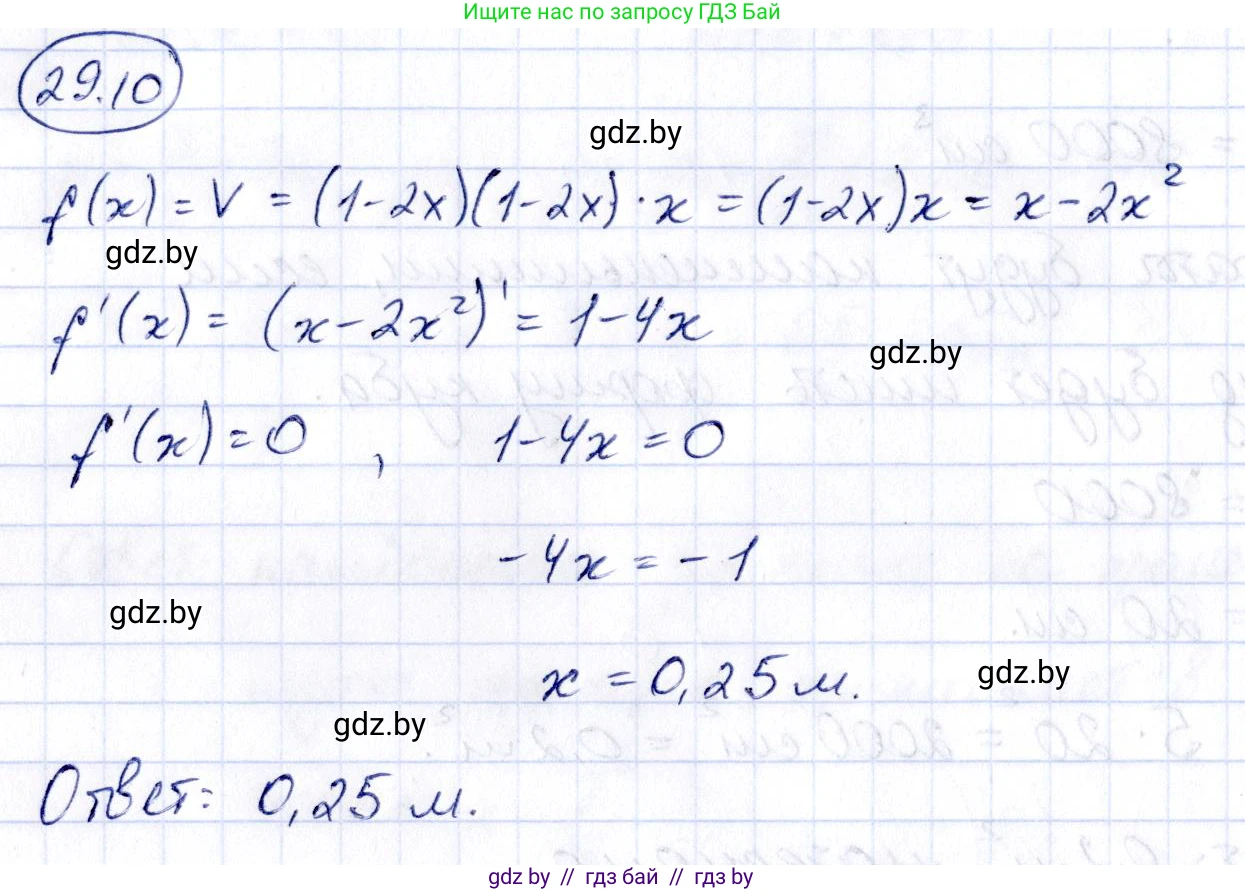 Ищите нас по запросу ГДЗ Бай
29.10
gdz.by
f(x) = V = (1-2x)(1-2x)·x = (1-2x)x = x-2x²
gdz.by
f'(x) = (x-2x²)' = 1-4x
gdz.by
f'(x)=0 , 1-4x=0
-4x = -1
gdz.by
x = 0,25 м.
gdz.by
gdz.by
Ответ: 0,25 м.
gdz by // гдз бай // gdz by